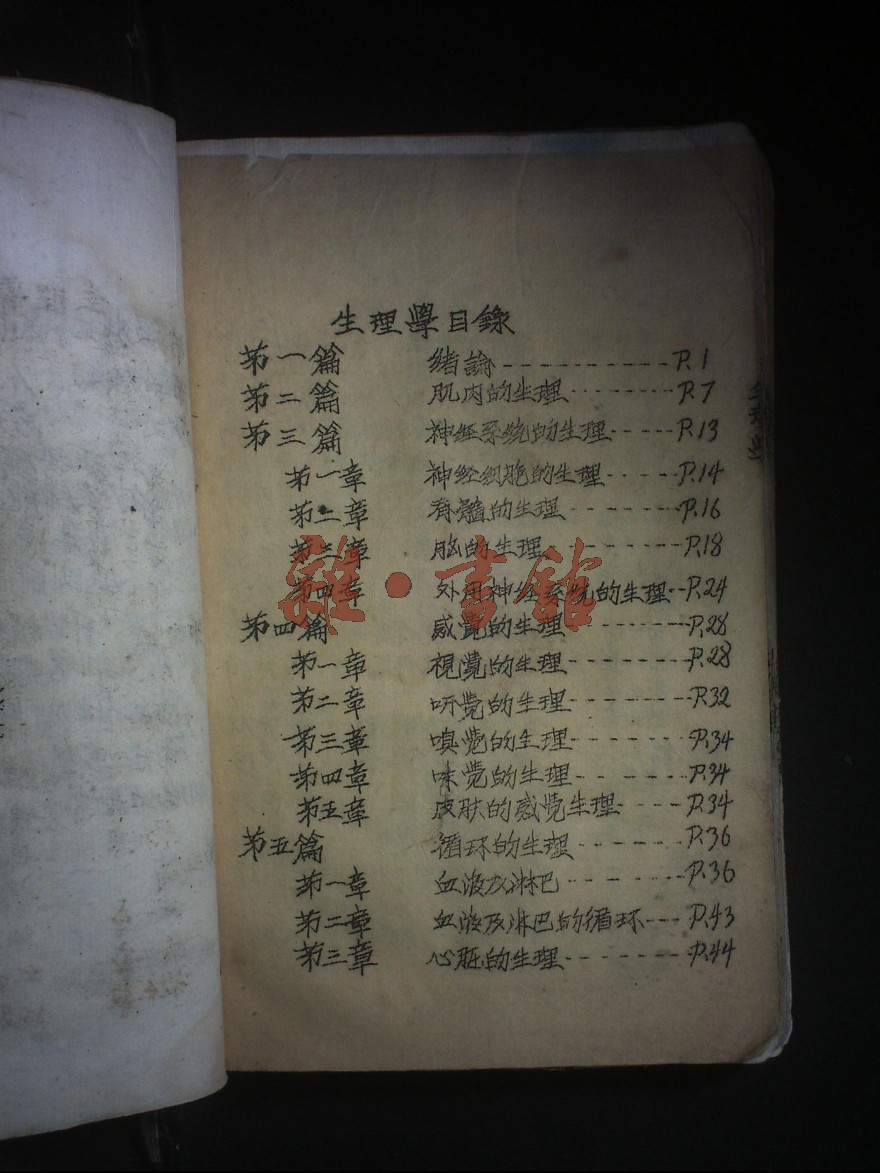 生理學目錄
第一篇 緒論 ---------- P.1
第二篇 肌肉的生理 ------- P.7
第三篇 神经系统的生理 ----- P.13
第一章 神经细胞的生理 ----- P.14
第二章 脊髓的生理 ------- P.16
第三章 脑的生理 ------- P.18
第四章 外周神经系统的生理 -- P.24
第四篇 感覺的生理 ------- P.28
第一章 視覺的生理 ------- P.28
第二章 听覺的生理 ------- P.32
第三章 嗅覺的生理 ------- P.34
第四章 味覺的生理 ------- P.34
第五章 皮肤的感觉生理 ---- P.34
第五篇 循环的生理 ------- P.36
第一章 血液及淋巴 ------- P.36
第二章 血液及淋巴的循环 --- P.43
第三章 心脏的生理 ------- P.44
雜·書館
生理學